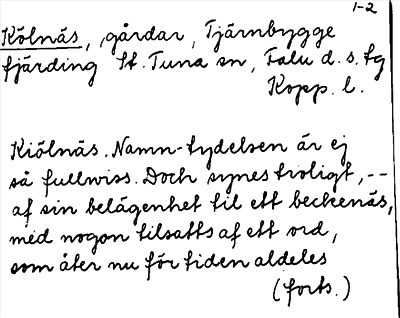 1-2
Kölnäs, gårdar, Tjärnbygge
fjärding St. Tuna sn, Falu d. s. fg
Kopp. l.
Kiölnäs. Namn-tydelsen är ej
så fullwiss. Doch synes troligt, --
af sin belägenhet til ett beckenäs,
med nogon tilsatts af ett ord,
som åter nu för tiden aldeles
(forts.)